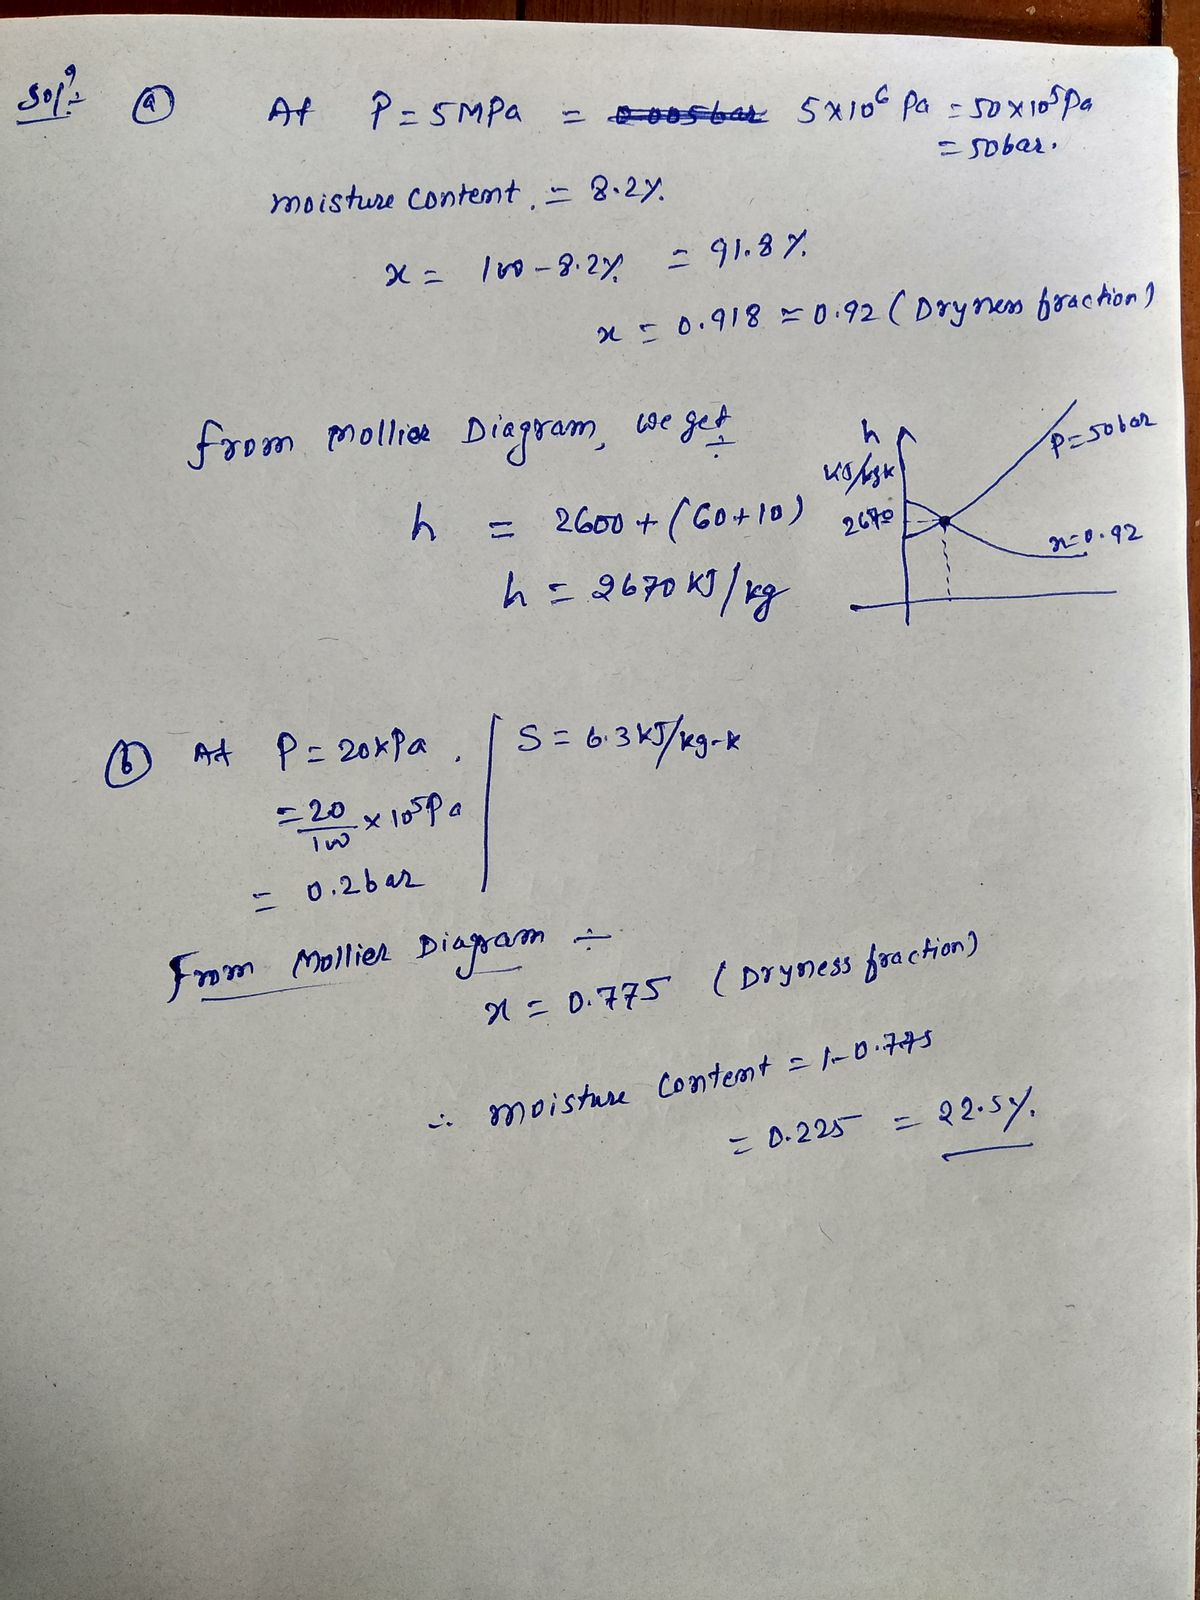 Sol?:- (a) At P = 5MPa = 0.005bar 5×10⁶ Pa = 50×10⁵Pa
= 50bar.
moisture content. = 8.2%.
x = 100-8.2% = 91.8%.
x = 0.918 ≈ 0.92 (Dryness fraction)
from Mollier Diagram, we get ÷
h = 2600 + (60+10)
h = 2670 KJ/kg
h
KJ/kgK
2670
P=50bar
x=0.92
(b) At P = 20KPa. S = 6.3 KJ/kg-K
= 20/100 × 10⁵Pa
= 0.2bar
From Mollier Diagram ÷
x = 0.775 (Dryness fraction)
∴ moisture content = 1-0.775
= 0.225 = 22.5%.